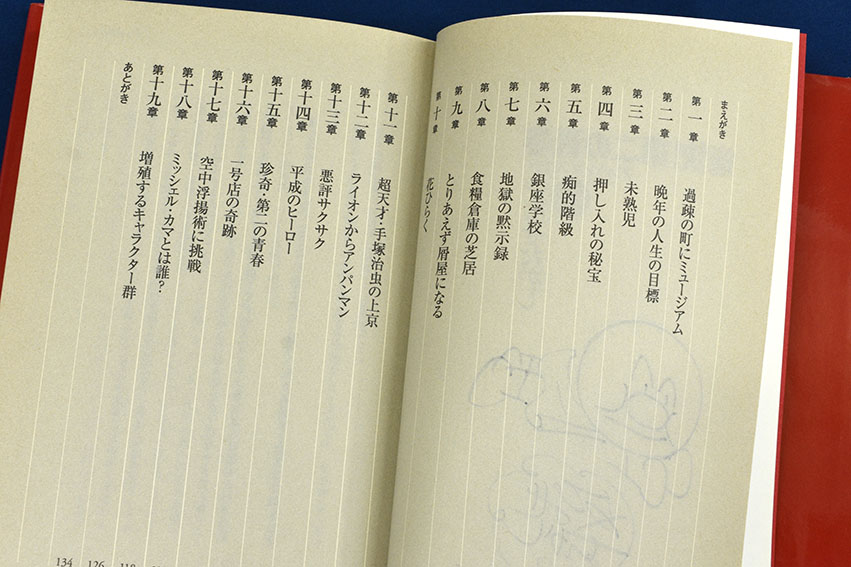 まえがき
第一章 過疎の町にミュージアム
第二章 晩年の人生の目標
第三章 未熟児
第四章 押し入れの秘宝
第五章 痴的階級
第六章 銀座学校
第七章 地獄の黙示録
第八章 食糧倉庫の芝居
第九章 とりあえず屑屋になる
第十章 花ひらく
第十一章 超天才・手塚治虫の上京
第十二章 ライオンからアンパンマン
第十三章 悪評サクサク
第十四章 平成のヒーロー
第十五章 珍奇・第二の青春
第十六章 一号店の奇跡
第十七章 空中浮揚術に挑戦
第十八章 ミッシェル・カマとは誰?
第十九章 増殖するキャラクター群
あとがき
134 126